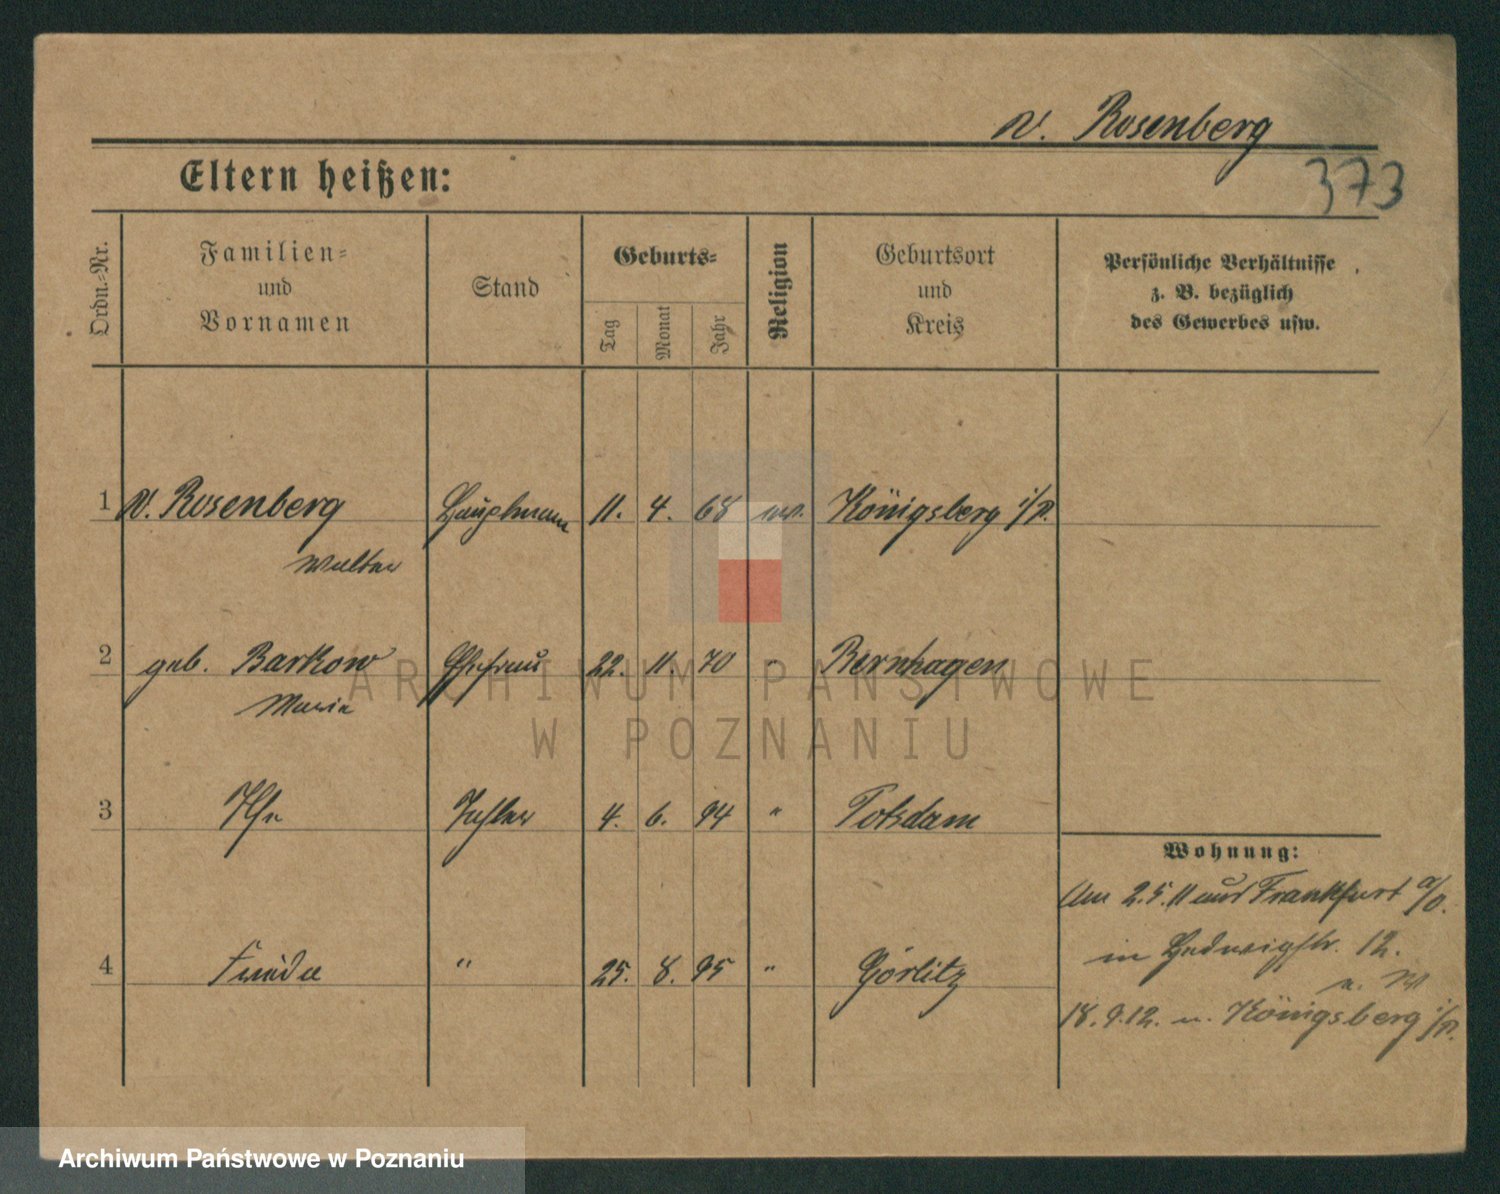 v. Rosenberg
373
Eltern heißen:
Ordn.-Nr.
Familien-
und
Vornamen
Stand
Geburts-
Tag
Monat
Jahr
Religion
Geburtsort
und
Kreis
Persönliche Verhältnisse
z. B. bezüglich
des Gewerbes usw.
1 v. Rosenberg Hauptmann 11. 4. 68 ev. Königsberg i/P.
Walter
2 geb. Barkow Ehefrau 22. 11. 70 " Bernhagen
Maria
3 Ilse Tochter 4. 6. 94 " Potsdam
Wohnung:
Am 2.5.11 aus Frankfurt a/O.
in Hedwigstr. 12.
4 Frieda " 25. 8. 95 " Görlitz
18.9.12. n. Königsberg i/P.
ARCHIWUM PAŃSTWOWE
W POZNANIU
Archiwum Państwowe w Poznaniu